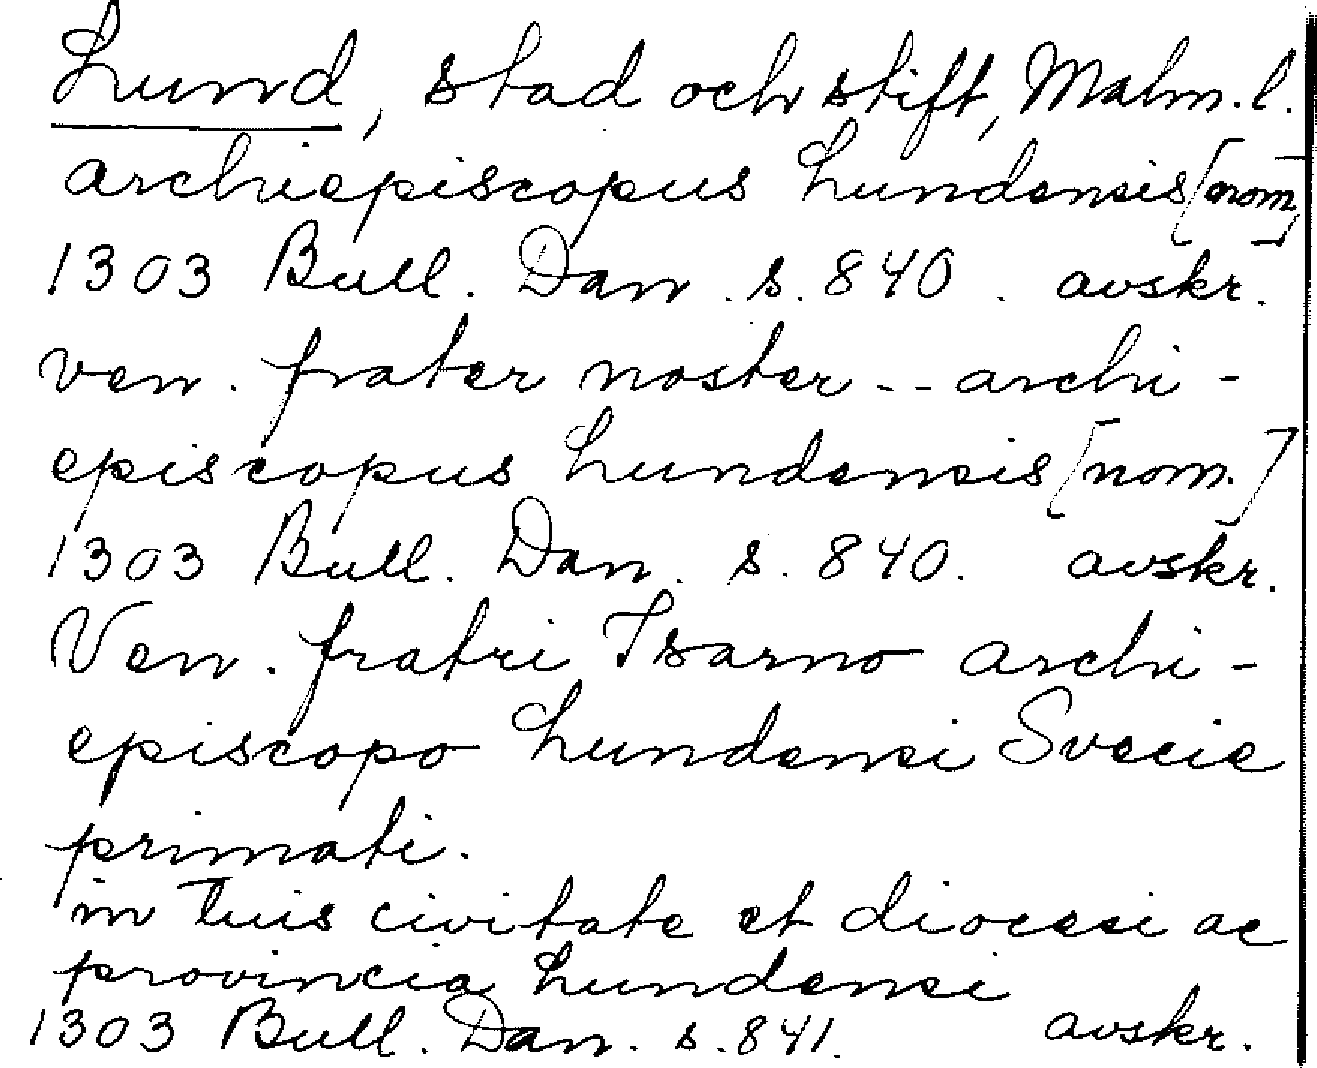 Lund, stad och stift, Malm. l.
archiepiscopus Lundensis [nom]
1303 Bull. Dan. s. 840. avskr.
ven. frater noster -- archi-
episcopus Lundensis [nom.]
1303 Bull. Dan. s. 840. avskr.
Ven. fratri Isarno archi-
episcopo Lundensi Svecie
primati.
in tuis civitate et diocesi ac
provincia Lundensi
1303 Bull. Dan. s. 841. avskr.